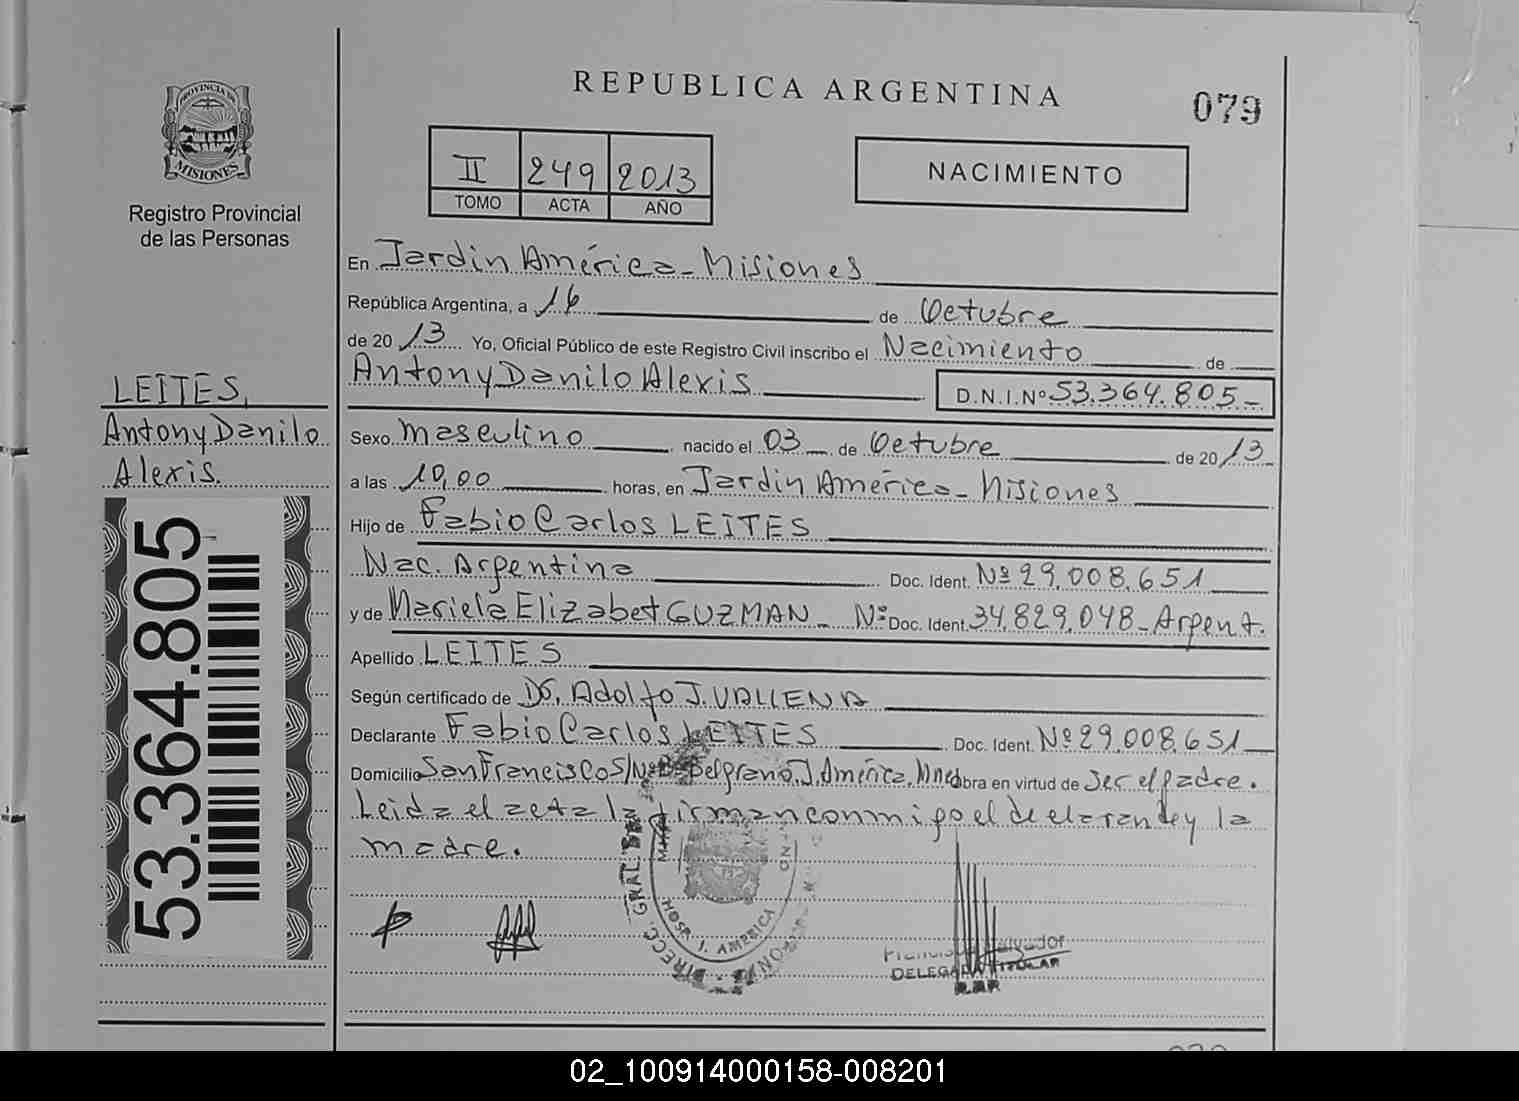 PROVINCIA DE
MISIONES
Registro Provincial
de las Personas
LEITES,
Antony Danilo
Alexis.
53.364.805
REPUBLICA ARGENTINA
079
II 249 2013
TOMO ACTA AÑO
NACIMIENTO
En Jardin América - Misiones
República Argentina, a 16 de Octubre
de 2013 Yo, Oficial Público de este Registro Civil inscribo el Nacimiento de
Antony Danilo Alexis D.N.I.Nº 53.364.805-
Sexo masculino nacido el 03 de Octubre de 2013
a las 10,00 horas, en Jardin América - Misiones
Hijo de Fabio Carlos LEITES
Nac. Argentina Doc. Ident. Nº 29.008.651
y de Mariela Elizabet GUZMAN - Nº Doc. Ident. 34.829.048 - Argent.
Apellido LEITES
Según certificado de Dr. Adolfo J. VALLENA
Declarante Fabio Carlos LEITES Doc. Ident. Nº 29.008.651
Domicilio San Francisco S/Nº Bº Belgrano, J. América, Mnes obra en virtud de ser el padre.
Leida el acta la firman conmigo el declarante y la
madre.
DIRECC. GRAL.
HOSP. J. AMERICA
Salvador
DELEGADA TITULAR
02_100914000158-008201